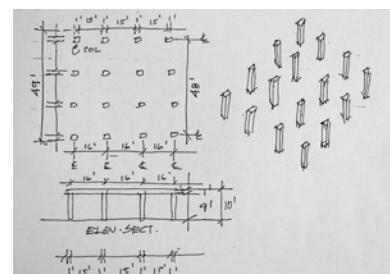 1' 15' 1' 15' 1' 15' 1'
℄ COL
49'
48'
16' 16' 16'
℄ ℄ ℄ ℄
16' 16' 16'
1'
9' 10'
ELEV-SECT.
1' 15' 1' 15' 1' 15' 1'